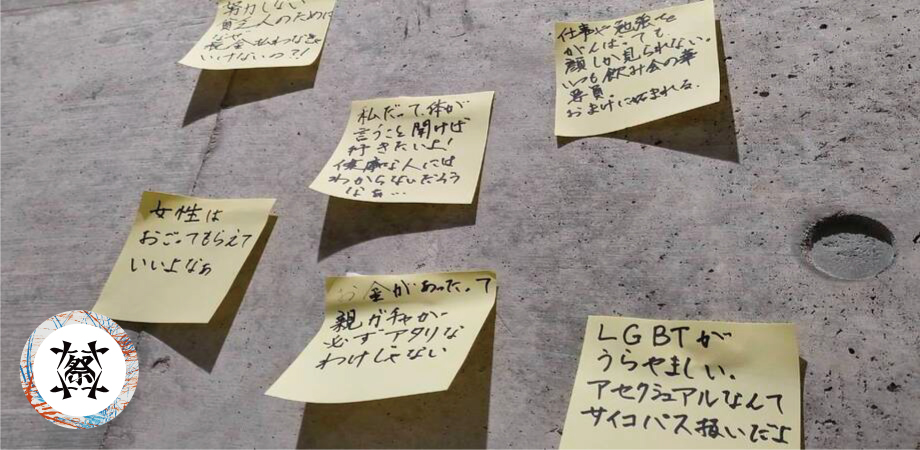 努力しない
貧乏人のために
なぜ
税金払わなきゃ
いけないの?!
仕事や勉強を
がんばっても、
顔しか見られない。
いつも飲み会の華
要員。
おまけに妬まれる。
私だって、体が
言うこと聞けば
行きたいよ!
健康な人には
わからないだろう
なぁ…
女性は
おごってもらえて
いいよなぁ
お金があったって
親ガチャが
必ずアタリな
わけじゃない
LGBTが
うらやましい。
アセクシュアルなんて
サイコパス扱いだよ
祭